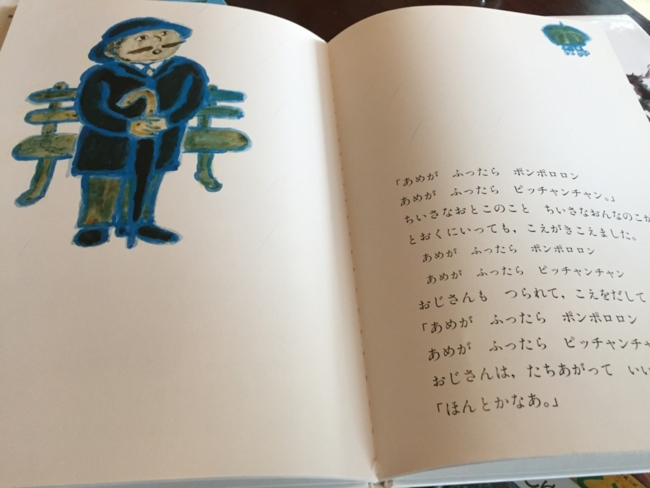 「あめが ふったら ポンポロロン
あめが ふったら ピッチャンチャン。」
ちいさなおとこのこと ちいさなおんなのこが
とおくにいっても，こえがきこえました。
あめが ふったら ポンポロロン
あめが ふったら ピッチャンチャン
おじさんも つられて，こえをだして
「あめが ふったら ポンポロロン
あめが ふったら ピッチャンチャ
おじさんは，たちあがって いい
「ほんとかなあ。」